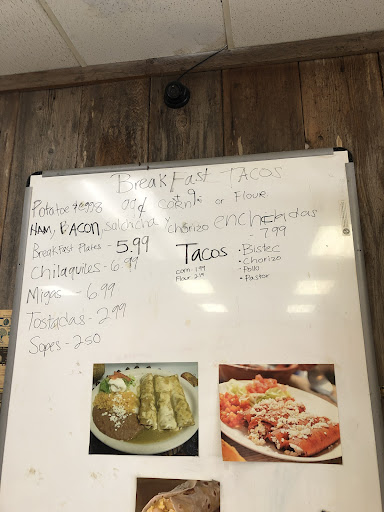 BreakFast TACOS
Potatoe 99¢ corn or Flour
HAM, BACON, salchicha y chorizo
enchiladas
- 7.99
BreakFast Plates - 5.99
Chilaquiles - 6.99
Migas - 6.99
Tostadas - 2.99
Sopes - 2.50
Tacos
corn 1.99
Flour 2.19
• Bistec
• Chorizo
• Pollo
• Pastor